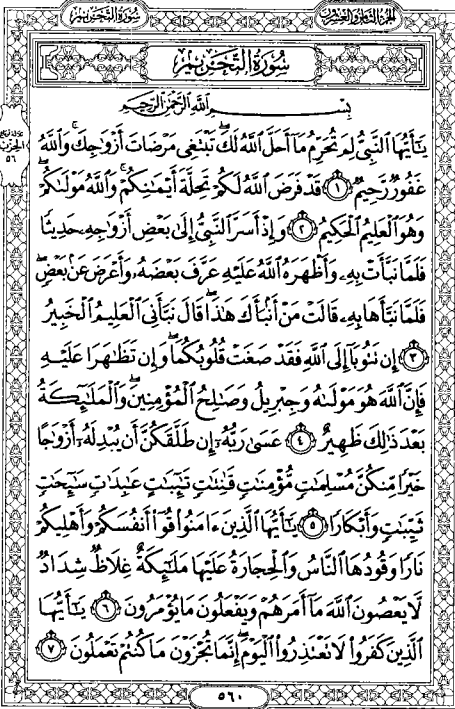 سُورَةُ التَّحْرِيمِ
الجزء الثامن والعشرون
سُورَةُ التَّحْرِيمِ
بِسْمِ ٱللَّهِ ٱلرَّحْمَٰنِ ٱلرَّحِيمِ
يَٰٓأَيُّهَا ٱلنَّبِىُّ لِمَ تُحَرِّمُ مَآ أَحَلَّ ٱللَّهُ لَكَ ۖ تَبْتَغِى مَرْضَاتَ أَزْوَٰجِكَ ۚ وَٱللَّهُ
غَفُورٌ رَّحِيمٌ ١ قَدْ فَرَضَ ٱللَّهُ لَكُمْ تَحِلَّةَ أَيْمَٰنِكُمْ ۚ وَٱللَّهُ مَوْلَىٰكُمْ ۖ
وَهُوَ ٱلْعَلِيمُ ٱلْحَكِيمُ ٢ وَإِذْ أَسَرَّ ٱلنَّبِىُّ إِلَىٰ بَعْضِ أَزْوَٰجِهِۦ حَدِيثًا
فَلَمَّا نَبَّأَتْ بِهِۦ وَأَظْهَرَهُ ٱللَّهُ عَلَيْهِ عَرَّفَ بَعْضَهُۥ وَأَعْرَضَ عَنۢ بَعْضٍ ۖ
فَلَمَّا نَبَّأَهَا بِهِۦ قَالَتْ مَنْ أَنۢبَأَكَ هَٰذَا ۖ قَالَ نَبَّأَنِىَ ٱلْعَلِيمُ ٱلْخَبِيرُ
٣ إِن تَتُوبَآ إِلَى ٱللَّهِ فَقَدْ صَغَتْ قُلُوبُكُمَا ۖ وَإِن تَظَٰهَرَا عَلَيْهِ
فَإِنَّ ٱللَّهَ هُوَ مَوْلَىٰهُ وَجِبْرِيلُ وَصَٰلِحُ ٱلْمُؤْمِنِينَ ۖ وَٱلْمَلَٰٓئِكَةُ
بَعْدَ ذَٰلِكَ ظَهِيرٌ ٤ عَسَىٰ رَبُّهُۥٓ إِن طَلَّقَكُنَّ أَن يُبْدِلَهُۥٓ أَزْوَٰجًا
خَيْرًا مِّنكُنَّ مُسْلِمَٰتٍ مُّؤْمِنَٰتٍ قَٰنِتَٰتٍ تَٰٓئِبَٰتٍ عَٰبِدَٰتٍ سَٰٓئِحَٰتٍ
ثَيِّبَٰتٍ وَأَبْكَارًا ٥ يَٰٓأَيُّهَا ٱلَّذِينَ ءَامَنُوا۟ قُوٓا۟ أَنفُسَكُمْ وَأَهْلِيكُمْ
نَارًا وَقُودُهَا ٱلنَّاسُ وَٱلْحِجَارَةُ عَلَيْهَا مَلَٰٓئِكَةٌ غِلَاظٌ شِدَادٌ
لَّا يَعْصُونَ ٱللَّهَ مَآ أَمَرَهُمْ وَيَفْعَلُونَ مَا يُؤْمَرُونَ ٦ يَٰٓأَيُّهَا
ٱلَّذِينَ كَفَرُوا۟ لَا تَعْتَذِرُوا۟ ٱلْيَوْمَ ۖ إِنَّمَا تُجْزَوْنَ مَا كُنتُمْ تَعْمَلُونَ ٧
الحزب
٥٦
٥٦٠